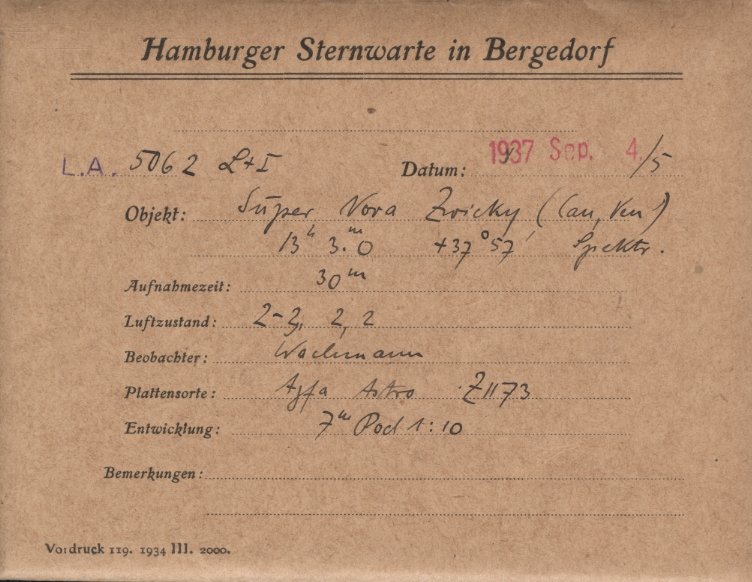 Hamburger Sternwarte in Bergedorf
L.A. 5062 L+I Datum: 1937 Sep. 4./5
Objekt: Super Nova Zwicky (Can. Ven)
13h 3.m0 +37°57' Spektr.
Aufnahmezeit: 30m
Luftzustand: 2-3, 2, 2
Beobachter: Wachmann
Plattensorte: Agfa Astro Z1173
Entwicklung: 7m Rod 1:10
Bemerkungen:
Vordruck 119. 1934 III. 2000.